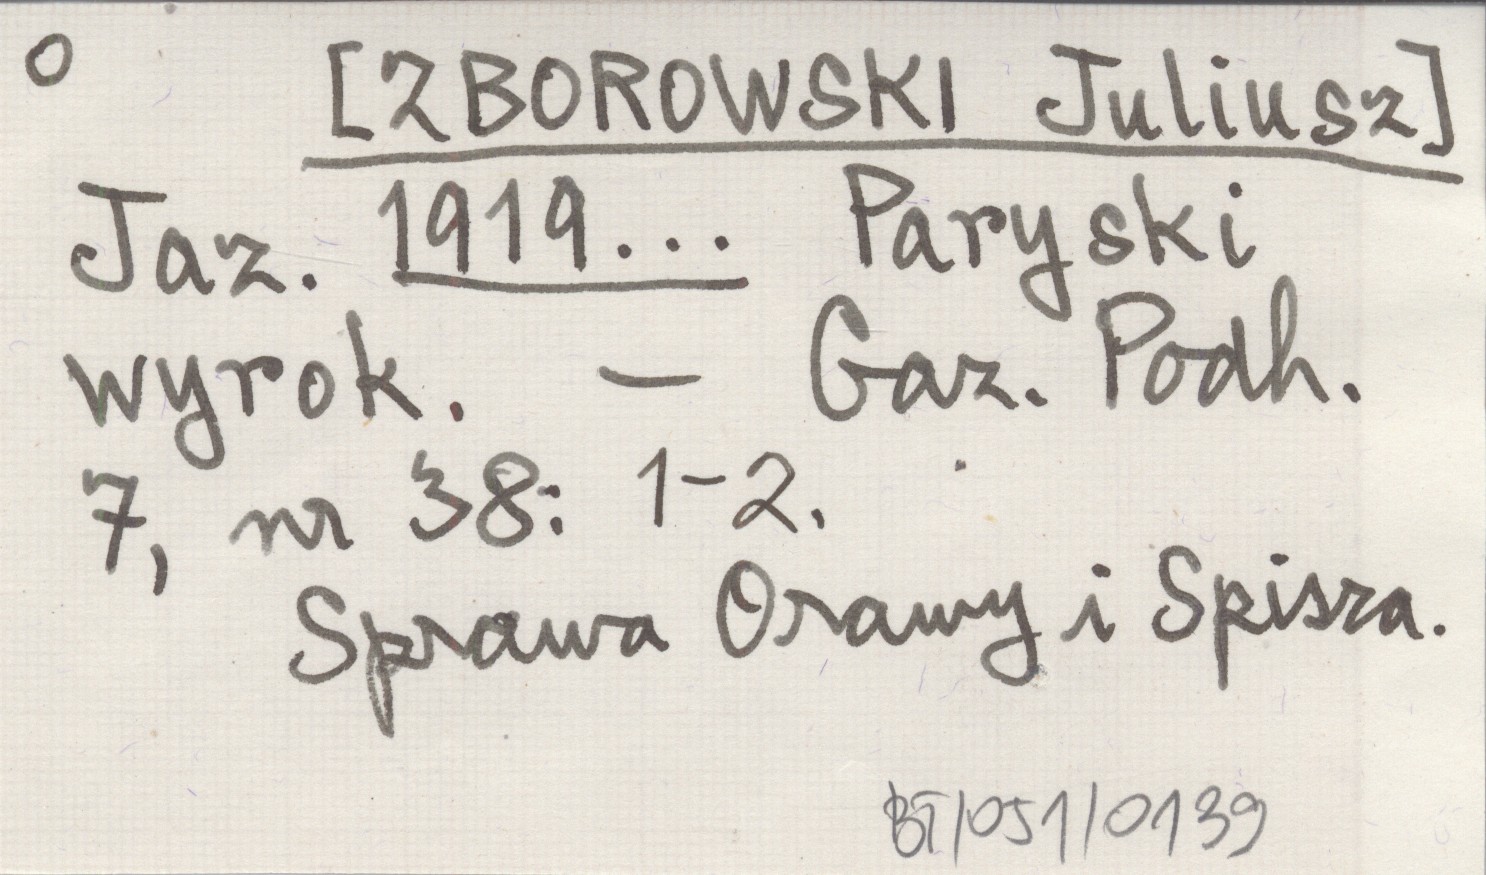 O [ZBOROWSKI Juliusz]
Jaz. 1919... Paryski
wyrok. — Gaz. Podh.
7, nr 38: 1-2.
Sprawa Orawy i Spisza.
BT/051/0139